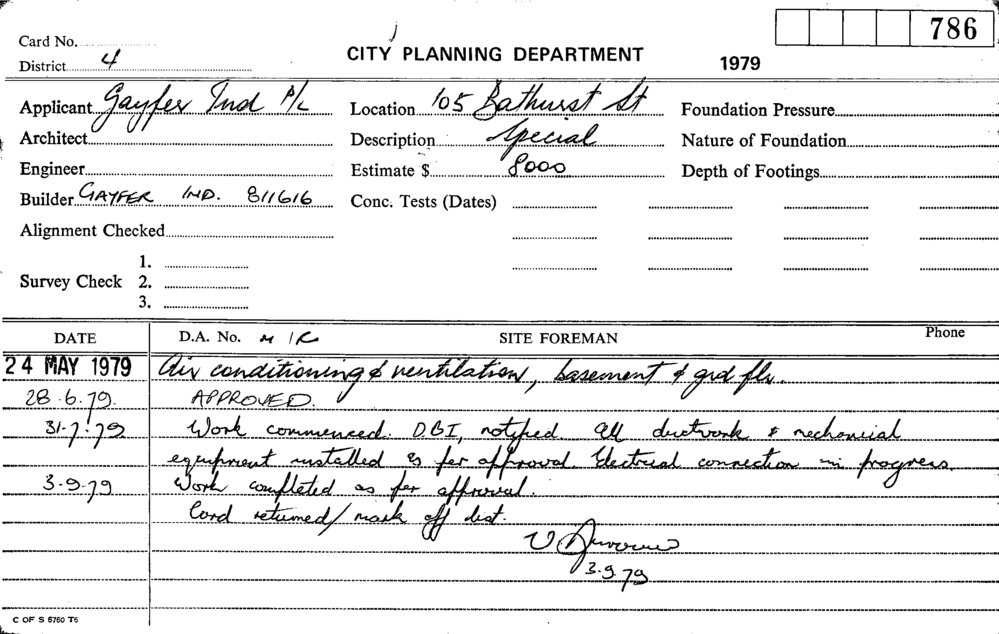 786
Card No.
CITY PLANNING DEPARTMENT
District 4
1979
Applicant Gayfer Ind P/L Location 105 Bathurst St Foundation Pressure
Architect Description Special Nature of Foundation
Engineer Estimate $ 8000 Depth of Footings
Builder GAYFER IND. 811616 Conc. Tests (Dates)
Alignment Checked
1.
Survey Check 2.
3.
DATE D.A. No. SITE FOREMAN Phone
24 MAY 1979 Air conditioning & ventilation, basement & grd flr.
28.6.79. APPROVED.
31.7.79 Work commenced. DBI, notified. All ductwork & mechanical
equipment installed as per approval. Electrical connection in progress.
3.9.79 Work completed as per approval.
Card returned/mark off dist.
3.9.79
C OF S 6760 T6